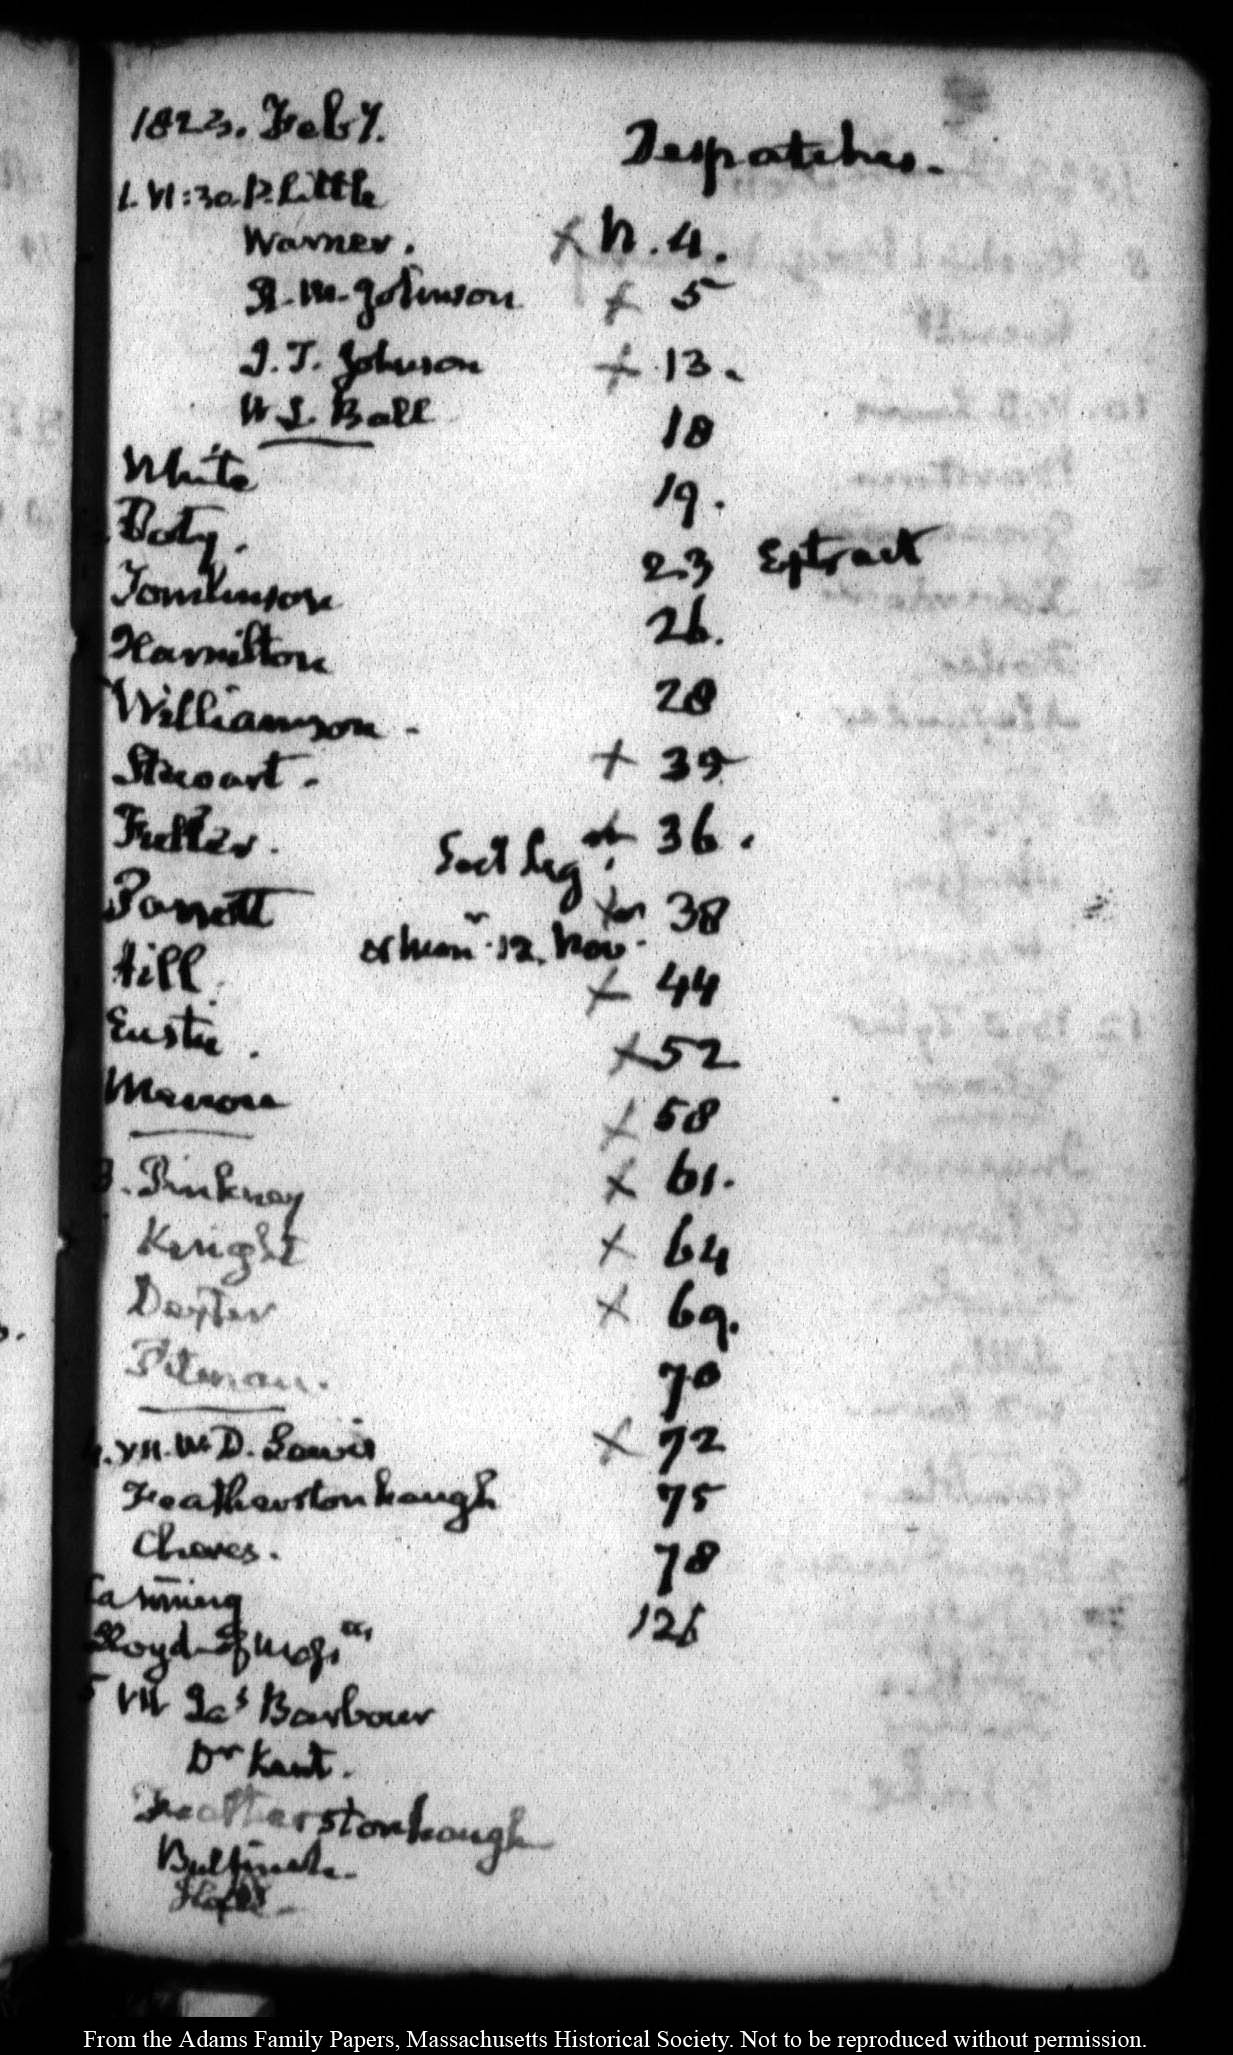 1823. Feby.
1. VI:30. P. Little
Warner.
R. M. Johnson
J. T. Johnson
W L Ball
White
Doty.
Tomlinson
Hamilton
Williamson.
Stewart.
Fuller.
Parrott
Hill.
Eustis.
Monroe
3. Pinkney
Knight
Dexter
Pitman.
4. VII. Wm D. Lewis
Featherstonhaugh
Cheves.
Canning
Lloyd of Mass
5 VII Jas Barbour
Dr Kent.
Featherstonhaugh
Bulfinch.
Despatches.
X N. 4.
X 5
X 13.
18
19.
23 Extract
26.
28
X 35
36.
38
12. Nov.
X 44
X 52
X 58
X 61.
X 64
X 69.
70
X 72
75
78
126
From the Adams Family Papers, Massachusetts Historical Society. Not to be reproduced without permission.